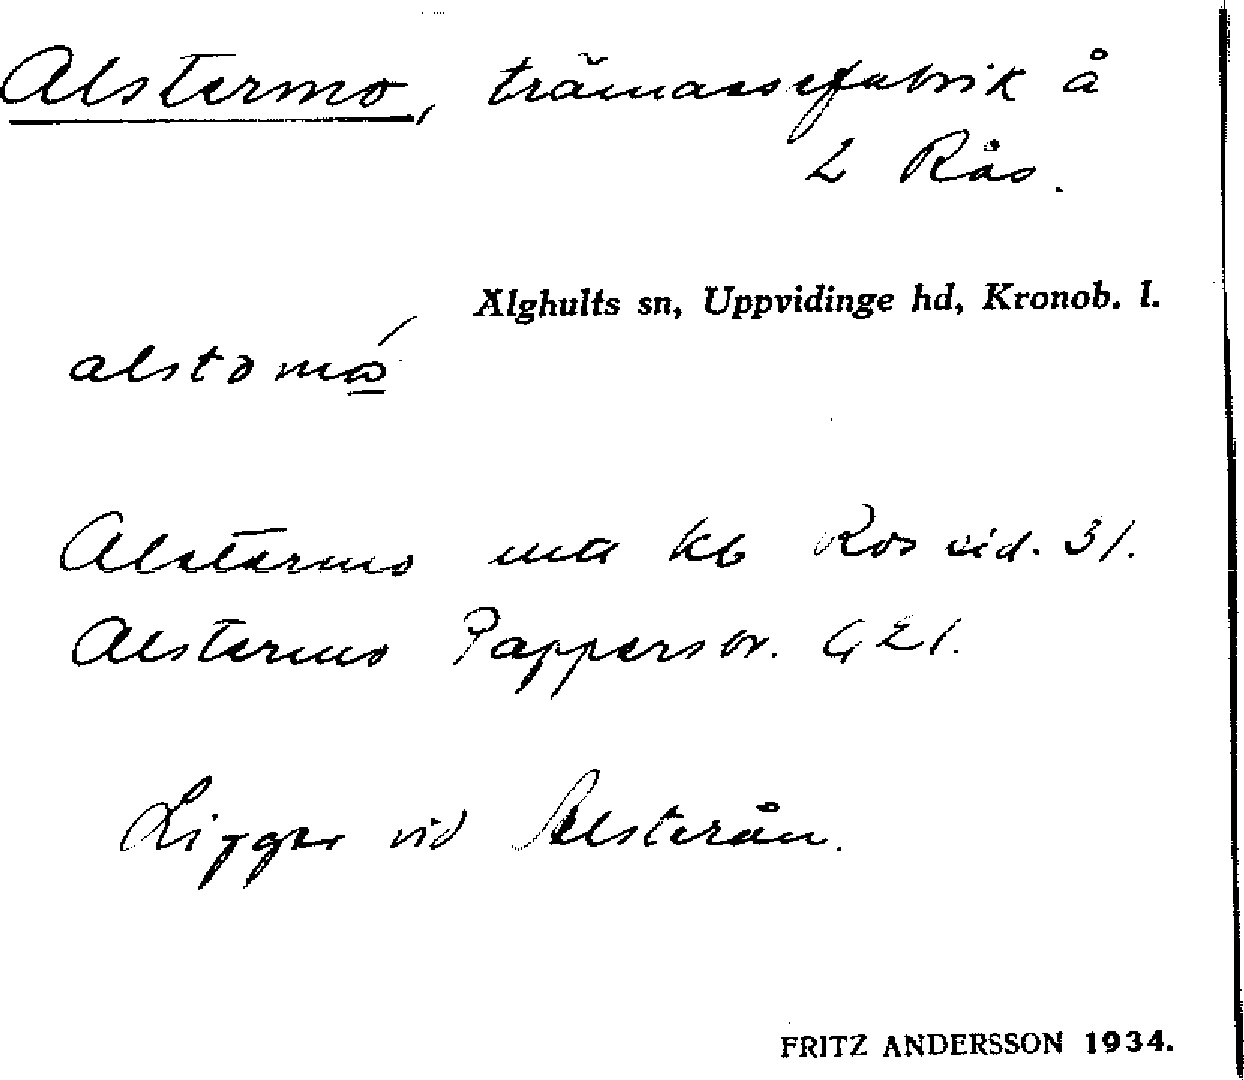 Alstermo, trämassefabrik å
2 Rås.
Älghults sn, Uppvidinge hd, Kronob. l.
alstəmó
Alstermo kb Ros 31.
Alstermo Pappersbr. G 21.
Ligger vid Alsterån.
FRITZ ANDERSSON 1934.